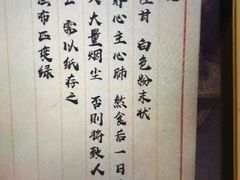 性甘 白色粉末状
养心主心肺 然食后一日
大量烟尘 否则将致人
需以纸存之
布匹变绿